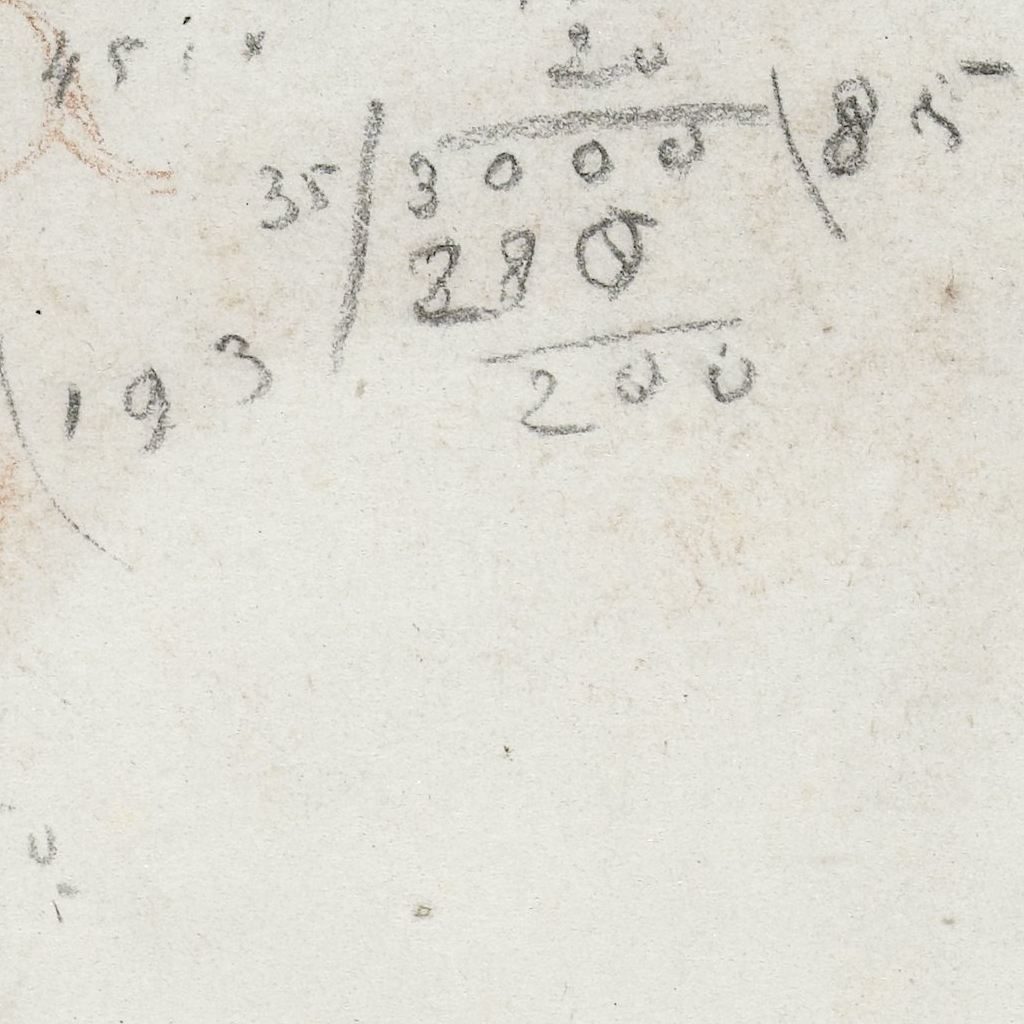 20
45
35 / 3000 \ 85-
280
200
193